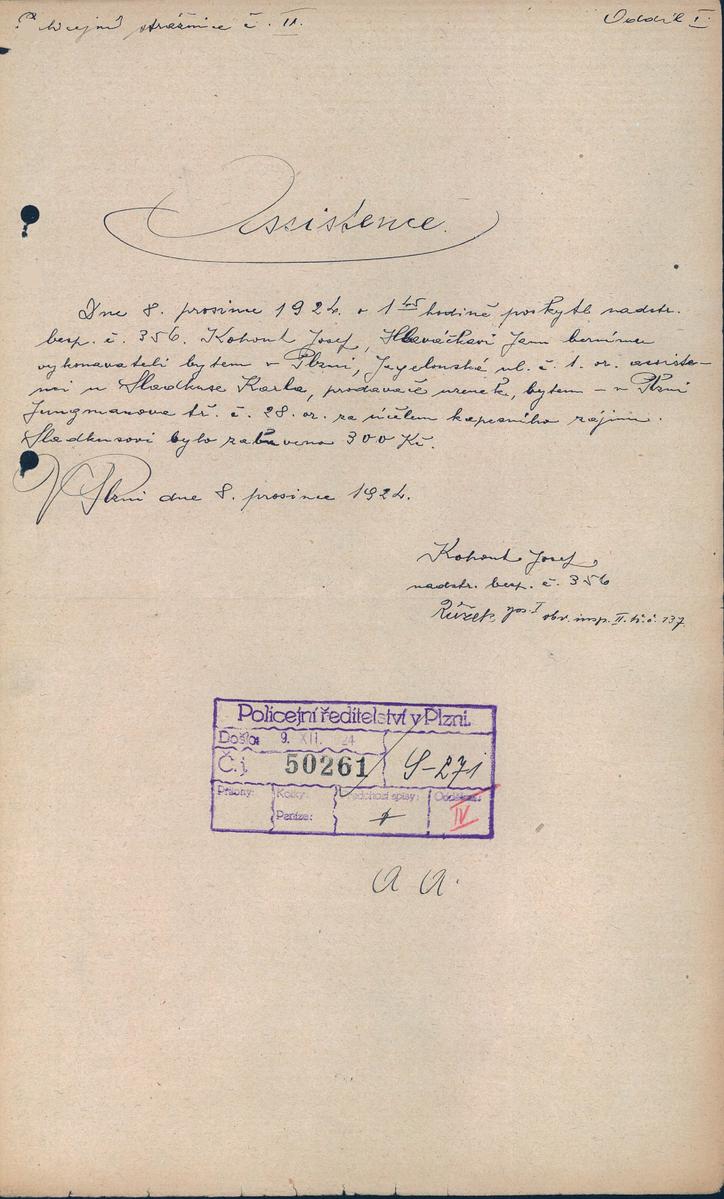 Policejní strážnice č. II.
Oddíl I.
Assistence.
Dne 8. prosince 1924 o 1 45 hodině poskytl nadstr.
besp. č. 356. Kohout Josef, Hlaváčkovi Janu bernímu
vykonavateli bytem v Plzni, Jagelonská ul. č. 1. or. assiste-
nci u Sladkuse Karla, prodavače uzenek, bytem - v Plzni
Jungmanova tř. č. 28. or. za účelem kapesního zájmu.
Sladkusovi bylo zabaveno 300 Kč.
V Plzni dne 8. prosince 1924.
Kohout Josef
nadstr. besp. č. 356
Růžek obv. insp. II. tř. č. 137
Policejní ředitelství v Plzni.
Došlo: 9. XII. 24
Č. j. 50261 S-271
Přílohy: Kolky: Předchozí spisy: Oddělení:
Peníze: IV
a a.